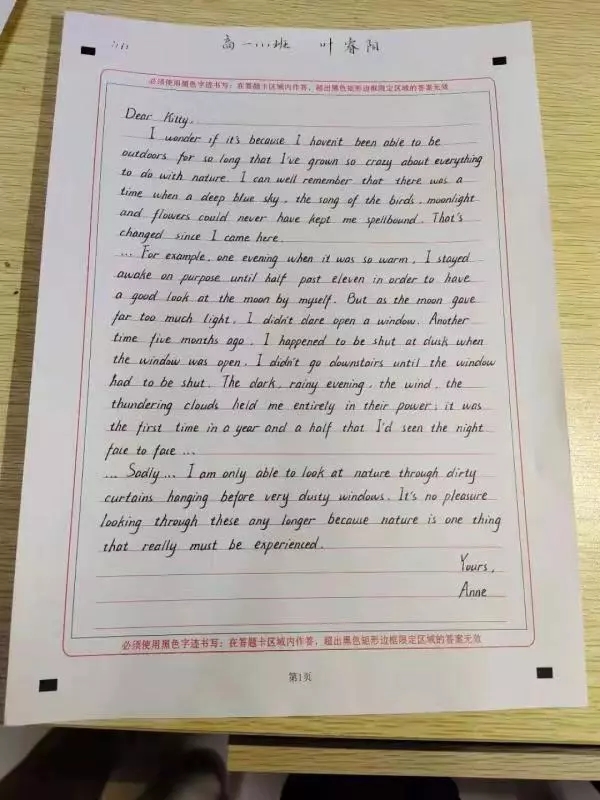 高一(11)班 叶睿阳
必须使用黑色字迹书写：在答题卡区域内作答，超出黑色矩形边框限定区域的答案无效
Dear Kitty,
I wonder if it's because I haven't been able to be
outdoors for so long that I've grown so crazy about everything
to do with nature. I can well remember that there was a
time when a deep blue sky, the song of the birds, moonlight
and flowers could never have kept me spellbound. That's
changed since I came here.
... For example, one evening when it was so warm, I stayed
awake on purpose until half past eleven in order to have
a good look at the moon by myself. But as the moon gave
far too much light, I didn't dare open a window. Another
time five months ago, I happened to be shut at dusk when
the window was open. I didn't go downstairs until the window
had to be shut. The dark, rainy evening, the wind, the
thundering clouds held me entirely in their power; it was
the first time in a year and a half that I'd seen the night
face to face ...
... Sadly ... I am only able to look at nature through dirty
curtains hanging before very dusty windows. It's no pleasure
looking through these any longer because nature is one thing
that really must be experienced.
Yours,
Anne
必须使用黑色字迹书写：在答题卡区域内作答，超出黑色矩形边框限定区域的答案无效
第1页